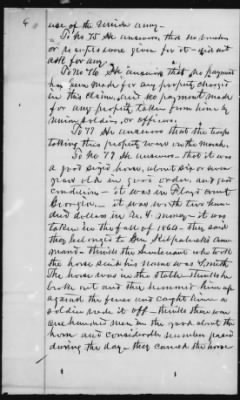 6
use of the Union army.
To No 75 He answers, that no voucher
or receipt was given for it - did not
ask for any.
To No 76 He answers that no payment
has been made for any property charged
in this claim, and no payment made
for any property taken from him by
Union soldiers, or officers.
To 77 He answers that the troops
taking this property were on the march.
To No. 77 He answers - that it was
a good sized horse, about six or seven
years old in good order, and good
condition - it was in Floyd County
Georgia. - it was worth two hun-
dred dollars in U.S. money - it was
taken in the fall of 1864 - they said
they belonged to Gen Kilpatricks com-
mand - thinks the lieutenant who took
the horse said his name was Smith
The horse was in the stable - 
broke out and they hemmed him up
against the fence and caught him a
soldier rode it off - thinks there were
one hundred men in the yard about the
barn and considerable number passed
during the day - they carried the horse